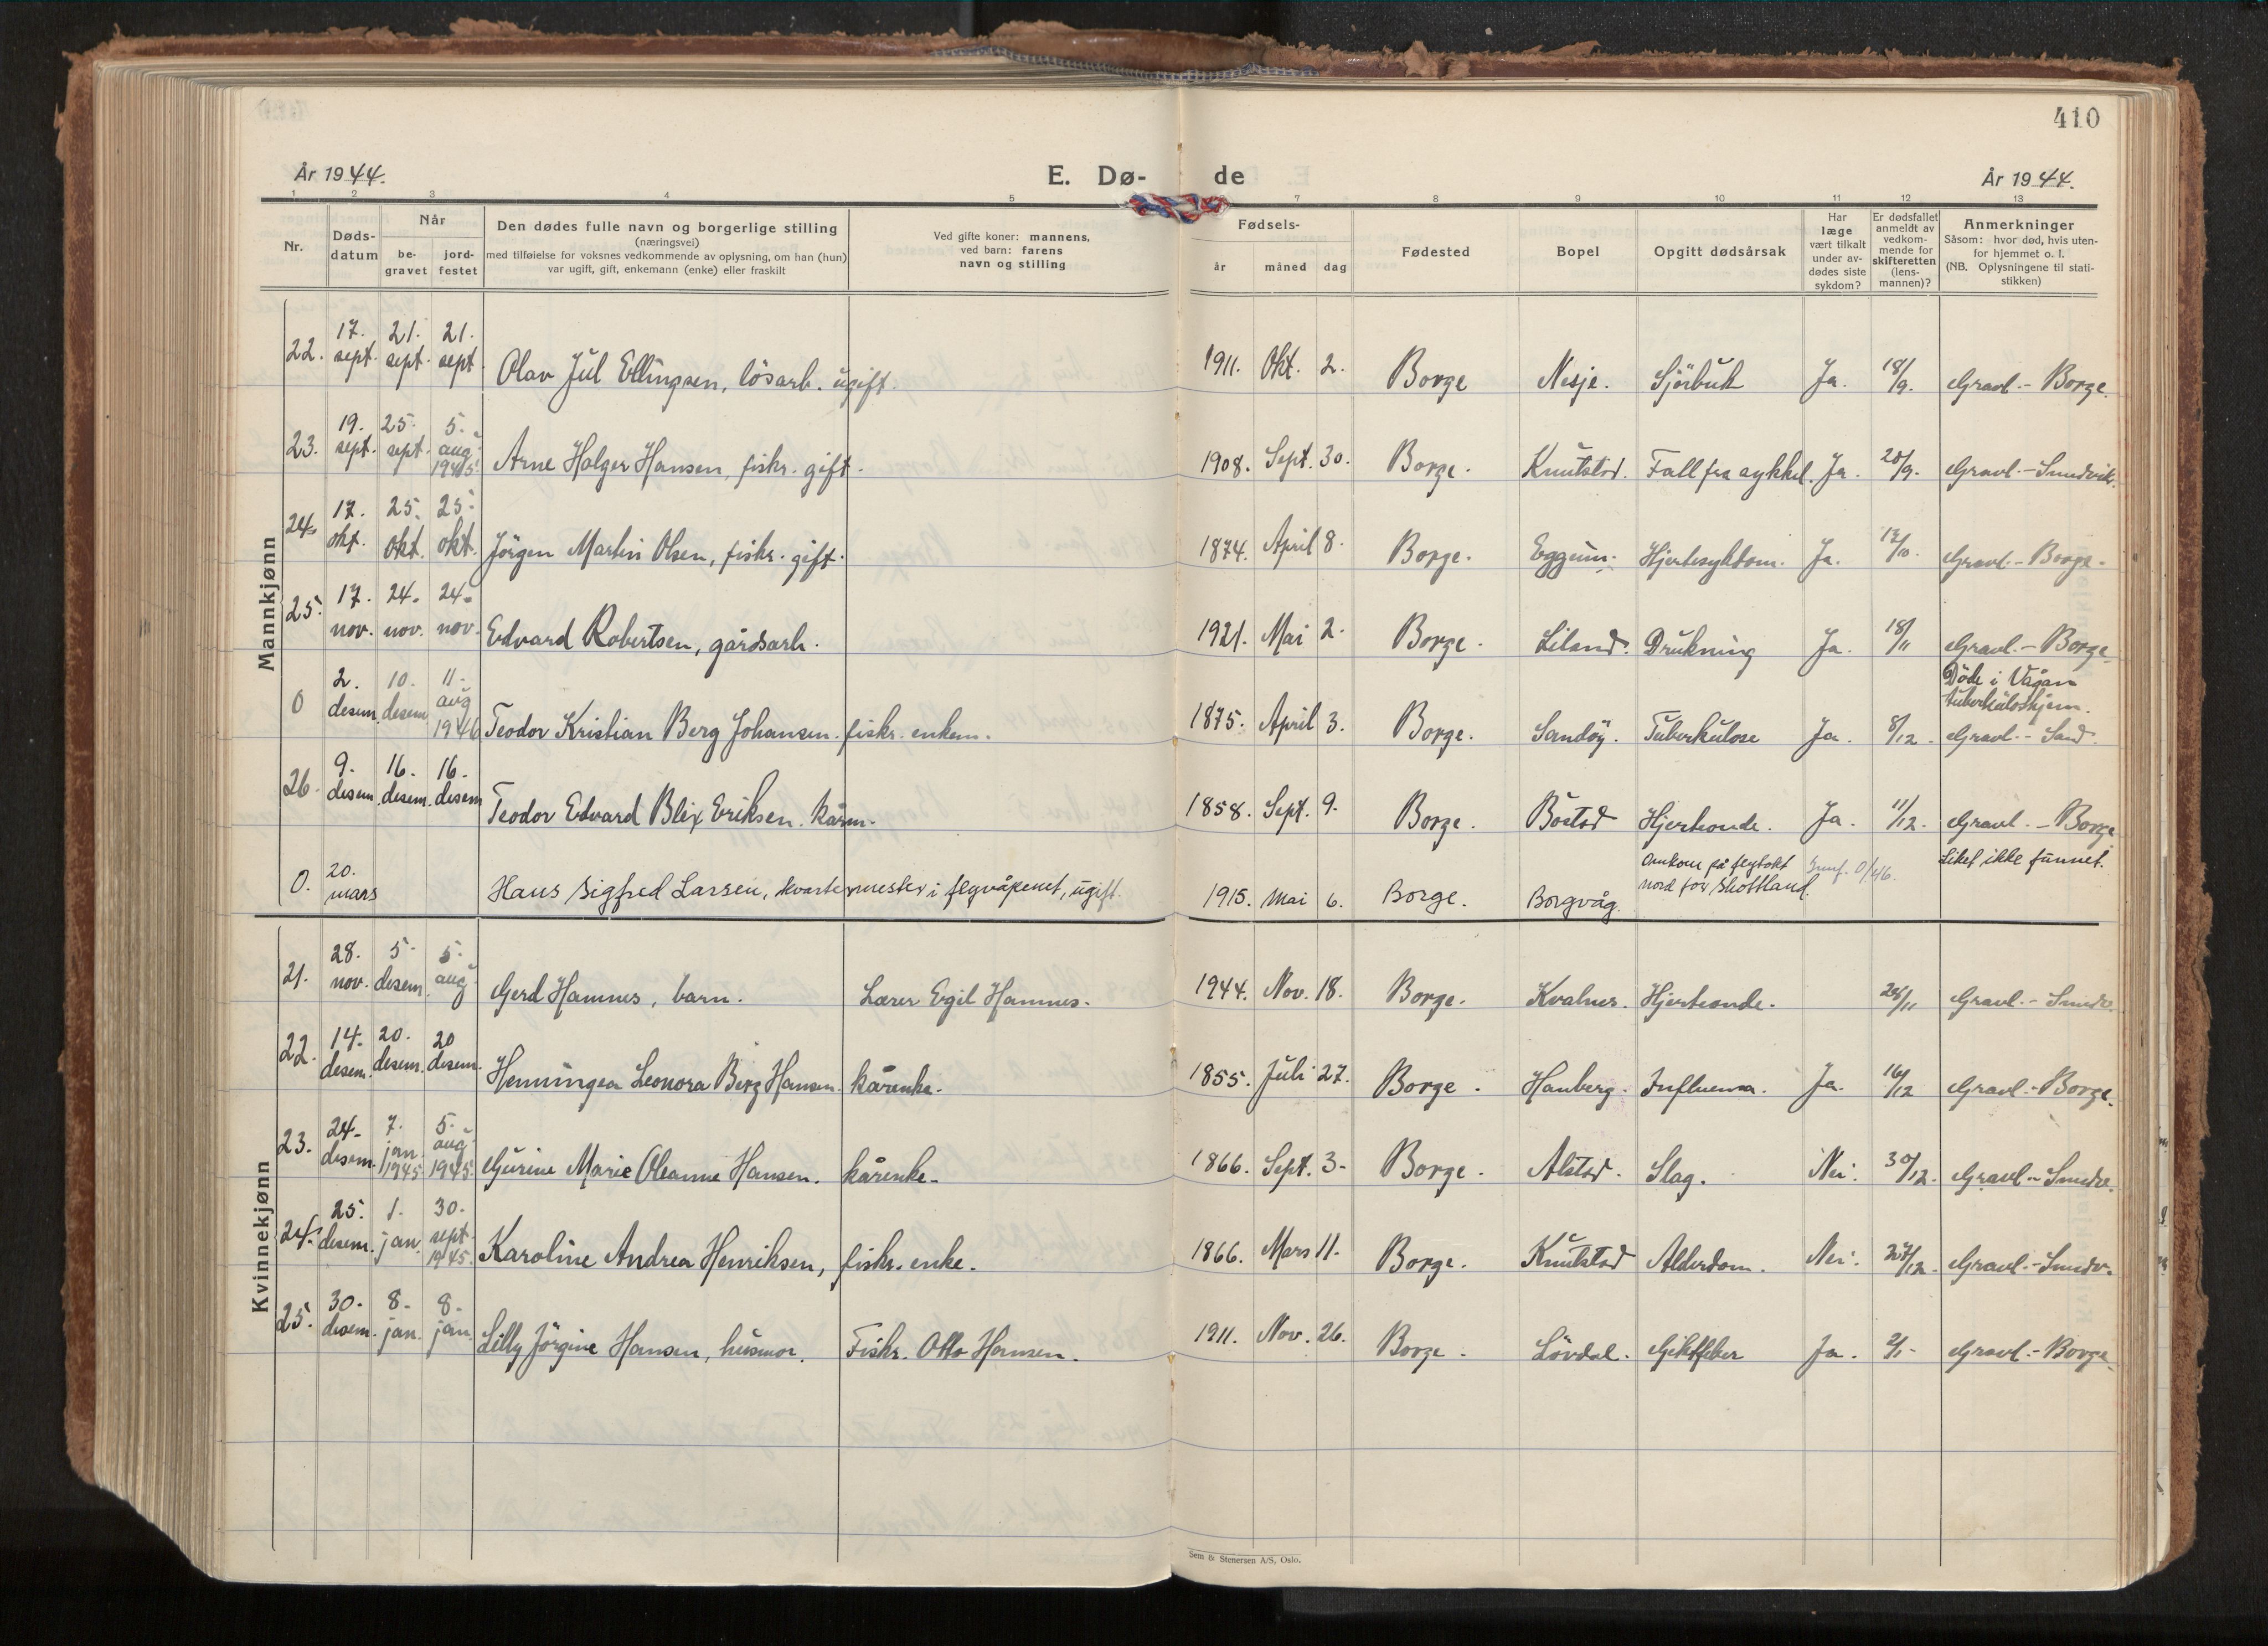 410
År 1944.
E. Dø- de
År 1944.
1 2 3 4 5 7 8 9 10 11 12 13
Nr.
Døds-
datum
Når
be-
gravet
jord-
festet
Den dødes fulle navn og borgerlige stilling
(næringsvei)
med tilføielse for voksnes vedkommende av oplysning, om han (hun)
var ugift, gift, enkemann (enke) eller fraskilt
Ved gifte koner: mannens,
ved barn: farens
navn og stilling
Fødsels-
år måned dag
Fødested
Bopel
Opgitt dødsårsak
Har
læge
vært tilkalt
under av-
dødes siste
sykdom?
Er dødsfallet
anmeldt av
vedkom-
mende for
skifteretten
(lens-
mannen)?
Anmerkninger
Såsom: hvor død, hvis uten-
for hjemmet o. l.
(NB. Oplysningene til stati-
stikken)
Mannkjønn
22. 17. sept. 21. sept. 21. sept Olav Jul Ellingsen, lösarb. ugift. 1911. Okt. 2. Borge Nesje. Sjörbuk Ja. 18/9. Gravl. - Borge.
23. 19. sept. 25. sept. 5. aug. 1945. Arne Holger Hansen, fiskr. gift. 1908. Sept. 30. Borge. Knutstad. Fall fra sykkel. Ja. 20/9. Gravl. - Sundvik.
24. 17. okt. 25. okt. 25. okt. Jörgen Martin Olsen, fiskr. gift. 1874. April 8. Borge. Eggum. Hjertesykdom. Ja. Gravl. - Borge.
25. 17. nov. 24. nov. 24. nov. Edvard Robertsen, gårdsarb. 1921. Mai 2. Borge. Liland. Drukning Ja. 18/11 Gravl. - Borge.
0 2. desem. 10. desem. 11. aug 1946 Teodor Kristian Berg Johansen. fiskr. enkem. 1875. April 3. Borge. Sandöy. Tuberkulose Ja. 8/12. Döde i Vågan
tuberkuloshjem.
Gravl. - Sand.
26. 9. desem. 16. desem. 16. desem Teodor Edvard Blix Eriksen. kårm. 1858. Sept. 9. Borge. Böstad Hjerteonde. Ja. 11/12. Gravl. - Borge
0. 20. mars Hans Sigfred Larsen, kvartermester i flyvåpenet, ugift. 1915. Mai 6. Borge. Borgvåg. Omkom på flytokt
nord for Skottland. 0/46. Liket ikke funnet.
Kvinnekjønn
21. 28. nov. 5. desem. 5. aug. Gerd Hamnes, barn. Lærer Egil Hamnes. 1944. Nov. 18. Borge. Kvalnes. Hjerteonde. Gravl. - Sundv.
22. 14. desem. 20. desem. 20 desem. Henningea Leonora Berg Hansen. kårenke. 1855. Juli 27. Borge. Hanberg. Influensa. Ja. 16/12 Gravl. - Borge.
23. 24. desem. 7. jan. 1945 5. aug. 1945 Gurine Marie Oleanne Hansen. kårenke. 1866. Sept. 3. Borge. Alstad. Slag. Nei. 30/12. Gravl. - Sundv.
24. 25. desem. 1. jan. 30. sept. 1945. Karoline Andrea Henriksen, fiskr. enke. 1866. Mars 11. Borge. Knutstad Alderdom. Nei. 27/12. Gravl. - Sundv.
25. 30. desem. 8. jan. 8. jan. Lilly Jörgine Hansen, husmor. Fiskr. Otto Hansen. 1911. Nov. 26. Borge. Lövdal. Giktfeber Ja. 2/1. Gravl. - Borge.
Sem & Stenersen A/S, Oslo.